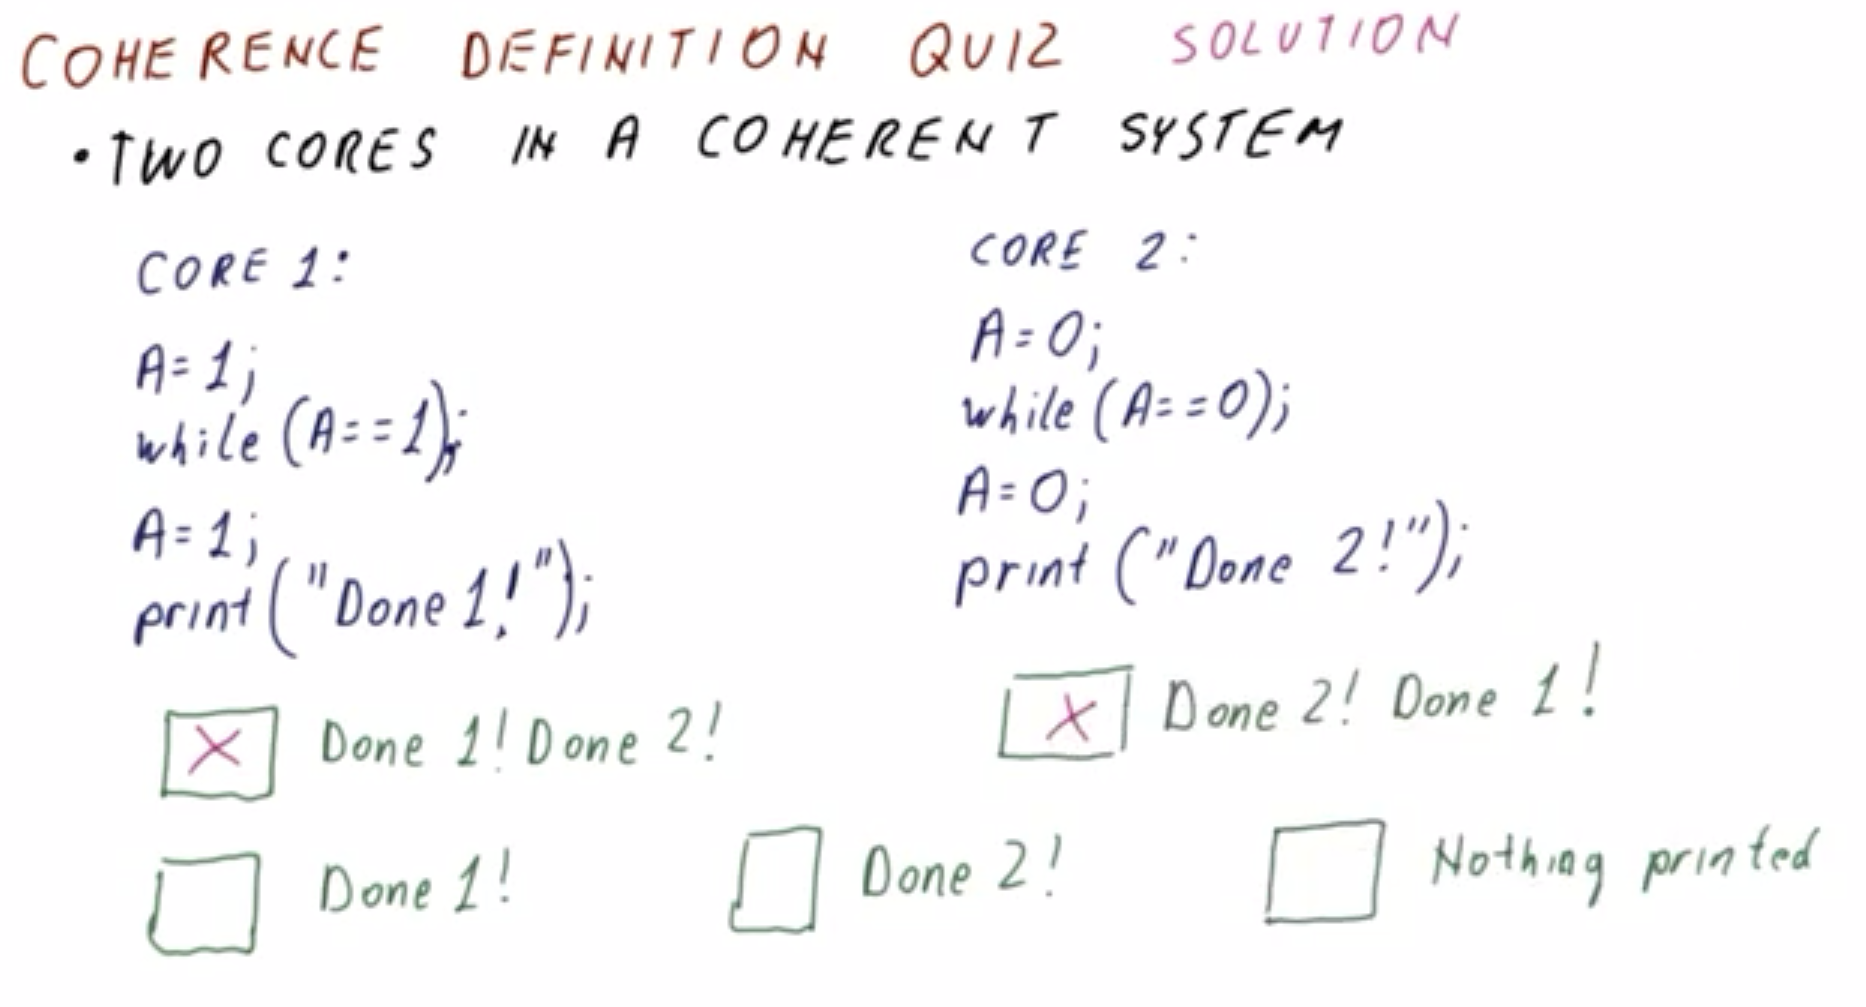 COHERENCE DEFINITION QUIZ SOLUTION
• TWO CORES IN A COHERENT SYSTEM
CORE 1:
A=1;
while (A==1);
A=1;
print ("Done 1!");
CORE 2:
A=0;
while (A==0);
A=0;
print ("Done 2!");
X Done 1! Done 2!
X Done 2! Done 1!
Done 1!
Done 2!
Nothing printed